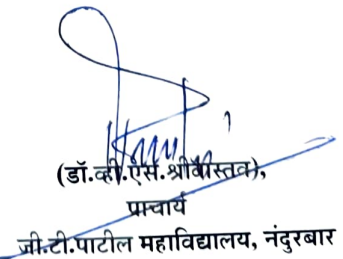 (डॉ.व्ही.एस.श्रीवास्तव),
प्राचार्य
जी.टी.पाटील महाविद्यालय, नंदुरबार